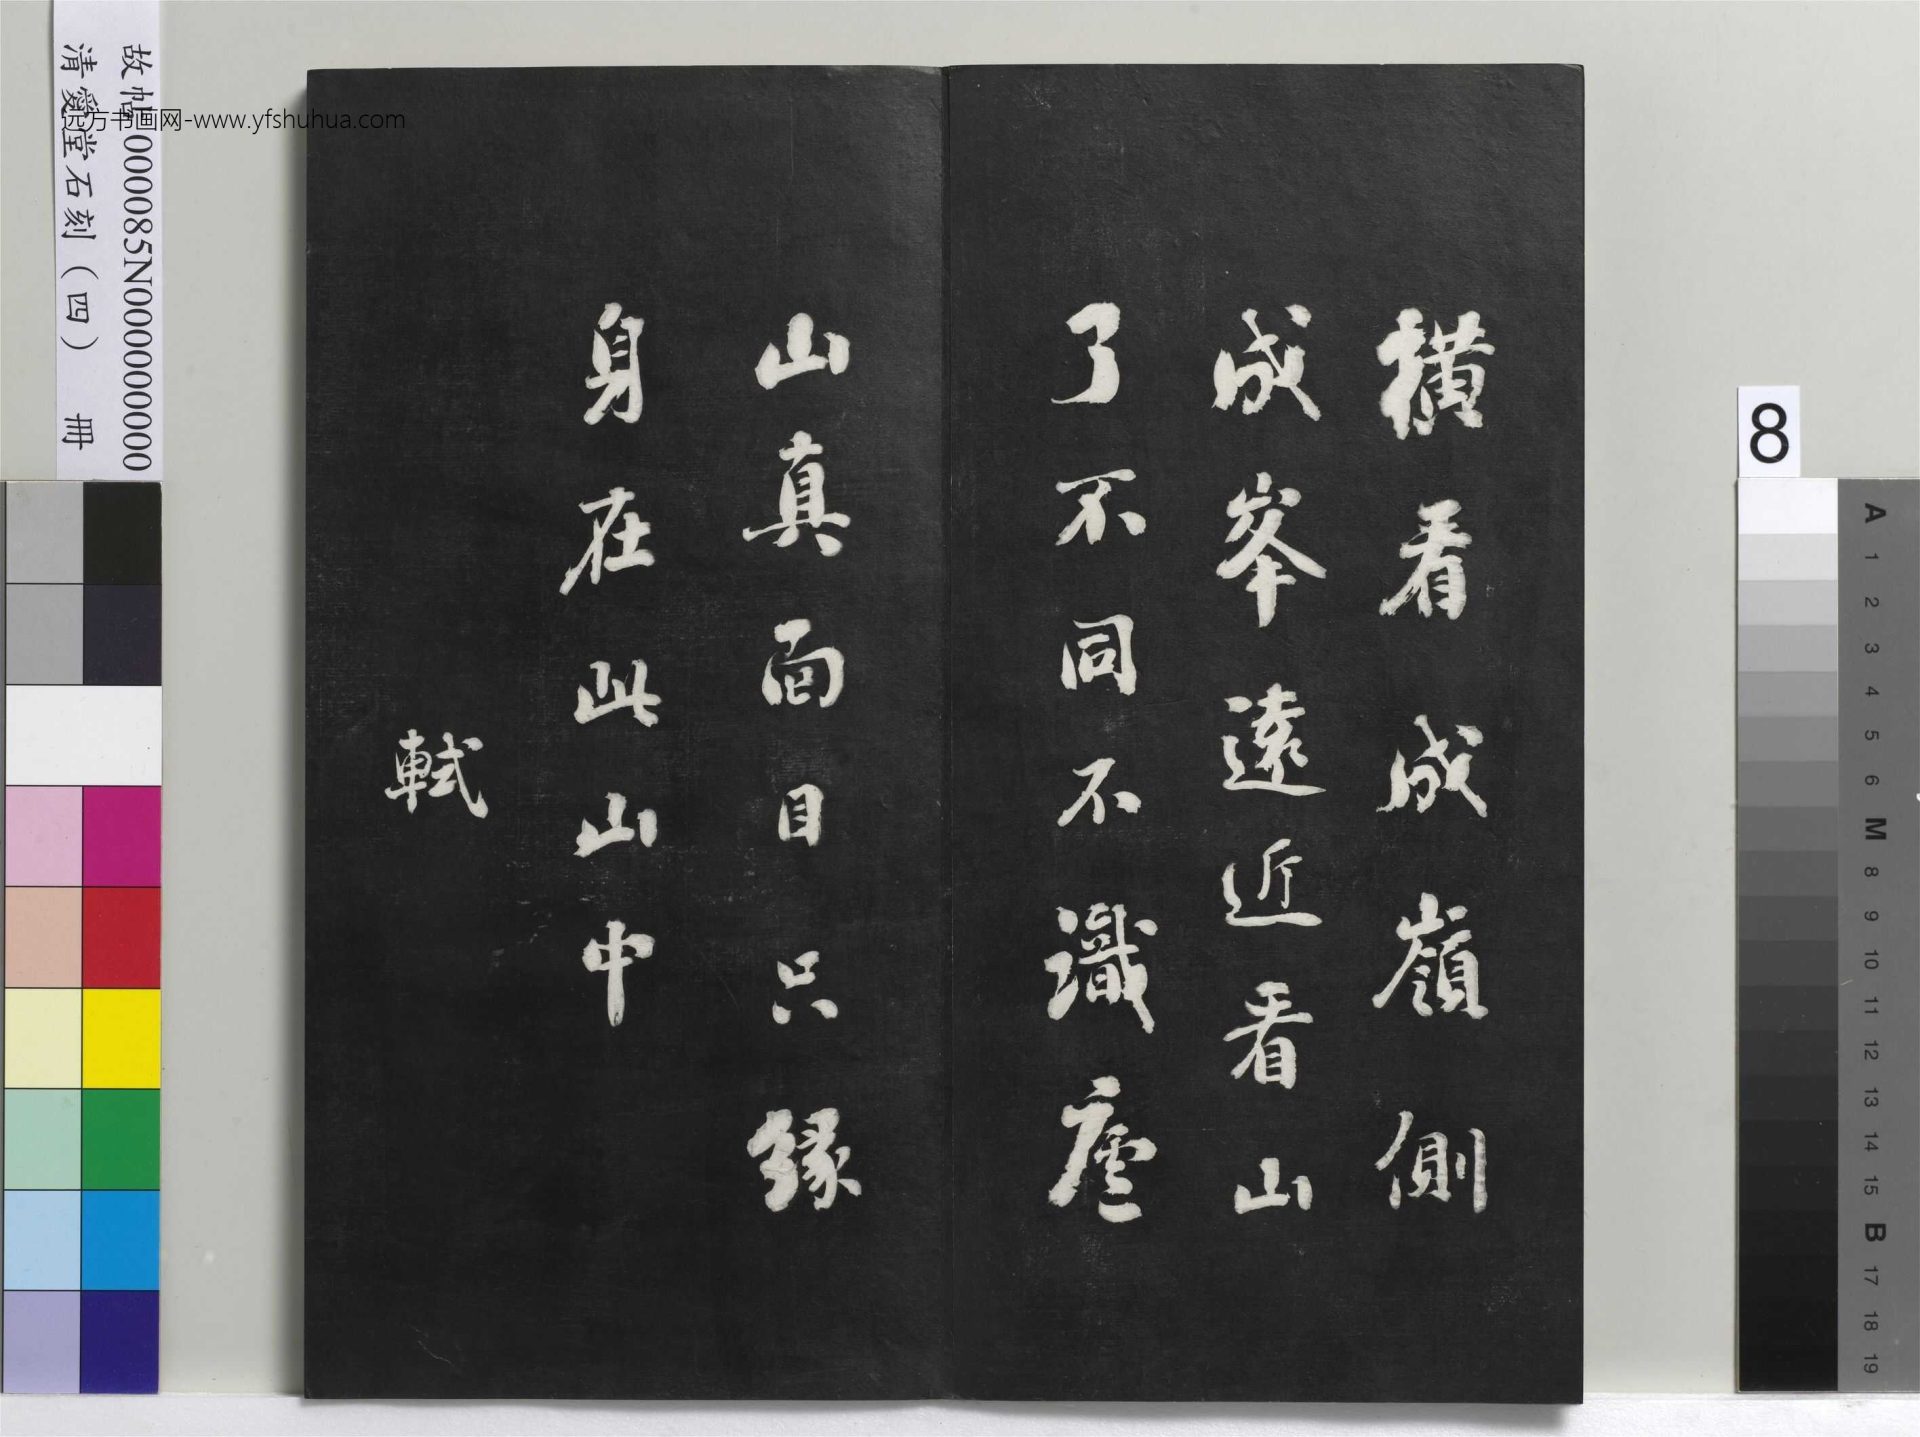 橫看成嶺側
成峯遠近看山
了不同不識廬
山真面目只緣
身在此山中
軾
故帖000085N000000000
清愛堂石刻（四） 冊
远方书画网-www.yfshuhua.com
8
A
1
2
3
4
5
6
M
8
9
10
11
12
13
14
15
B
17
18
19